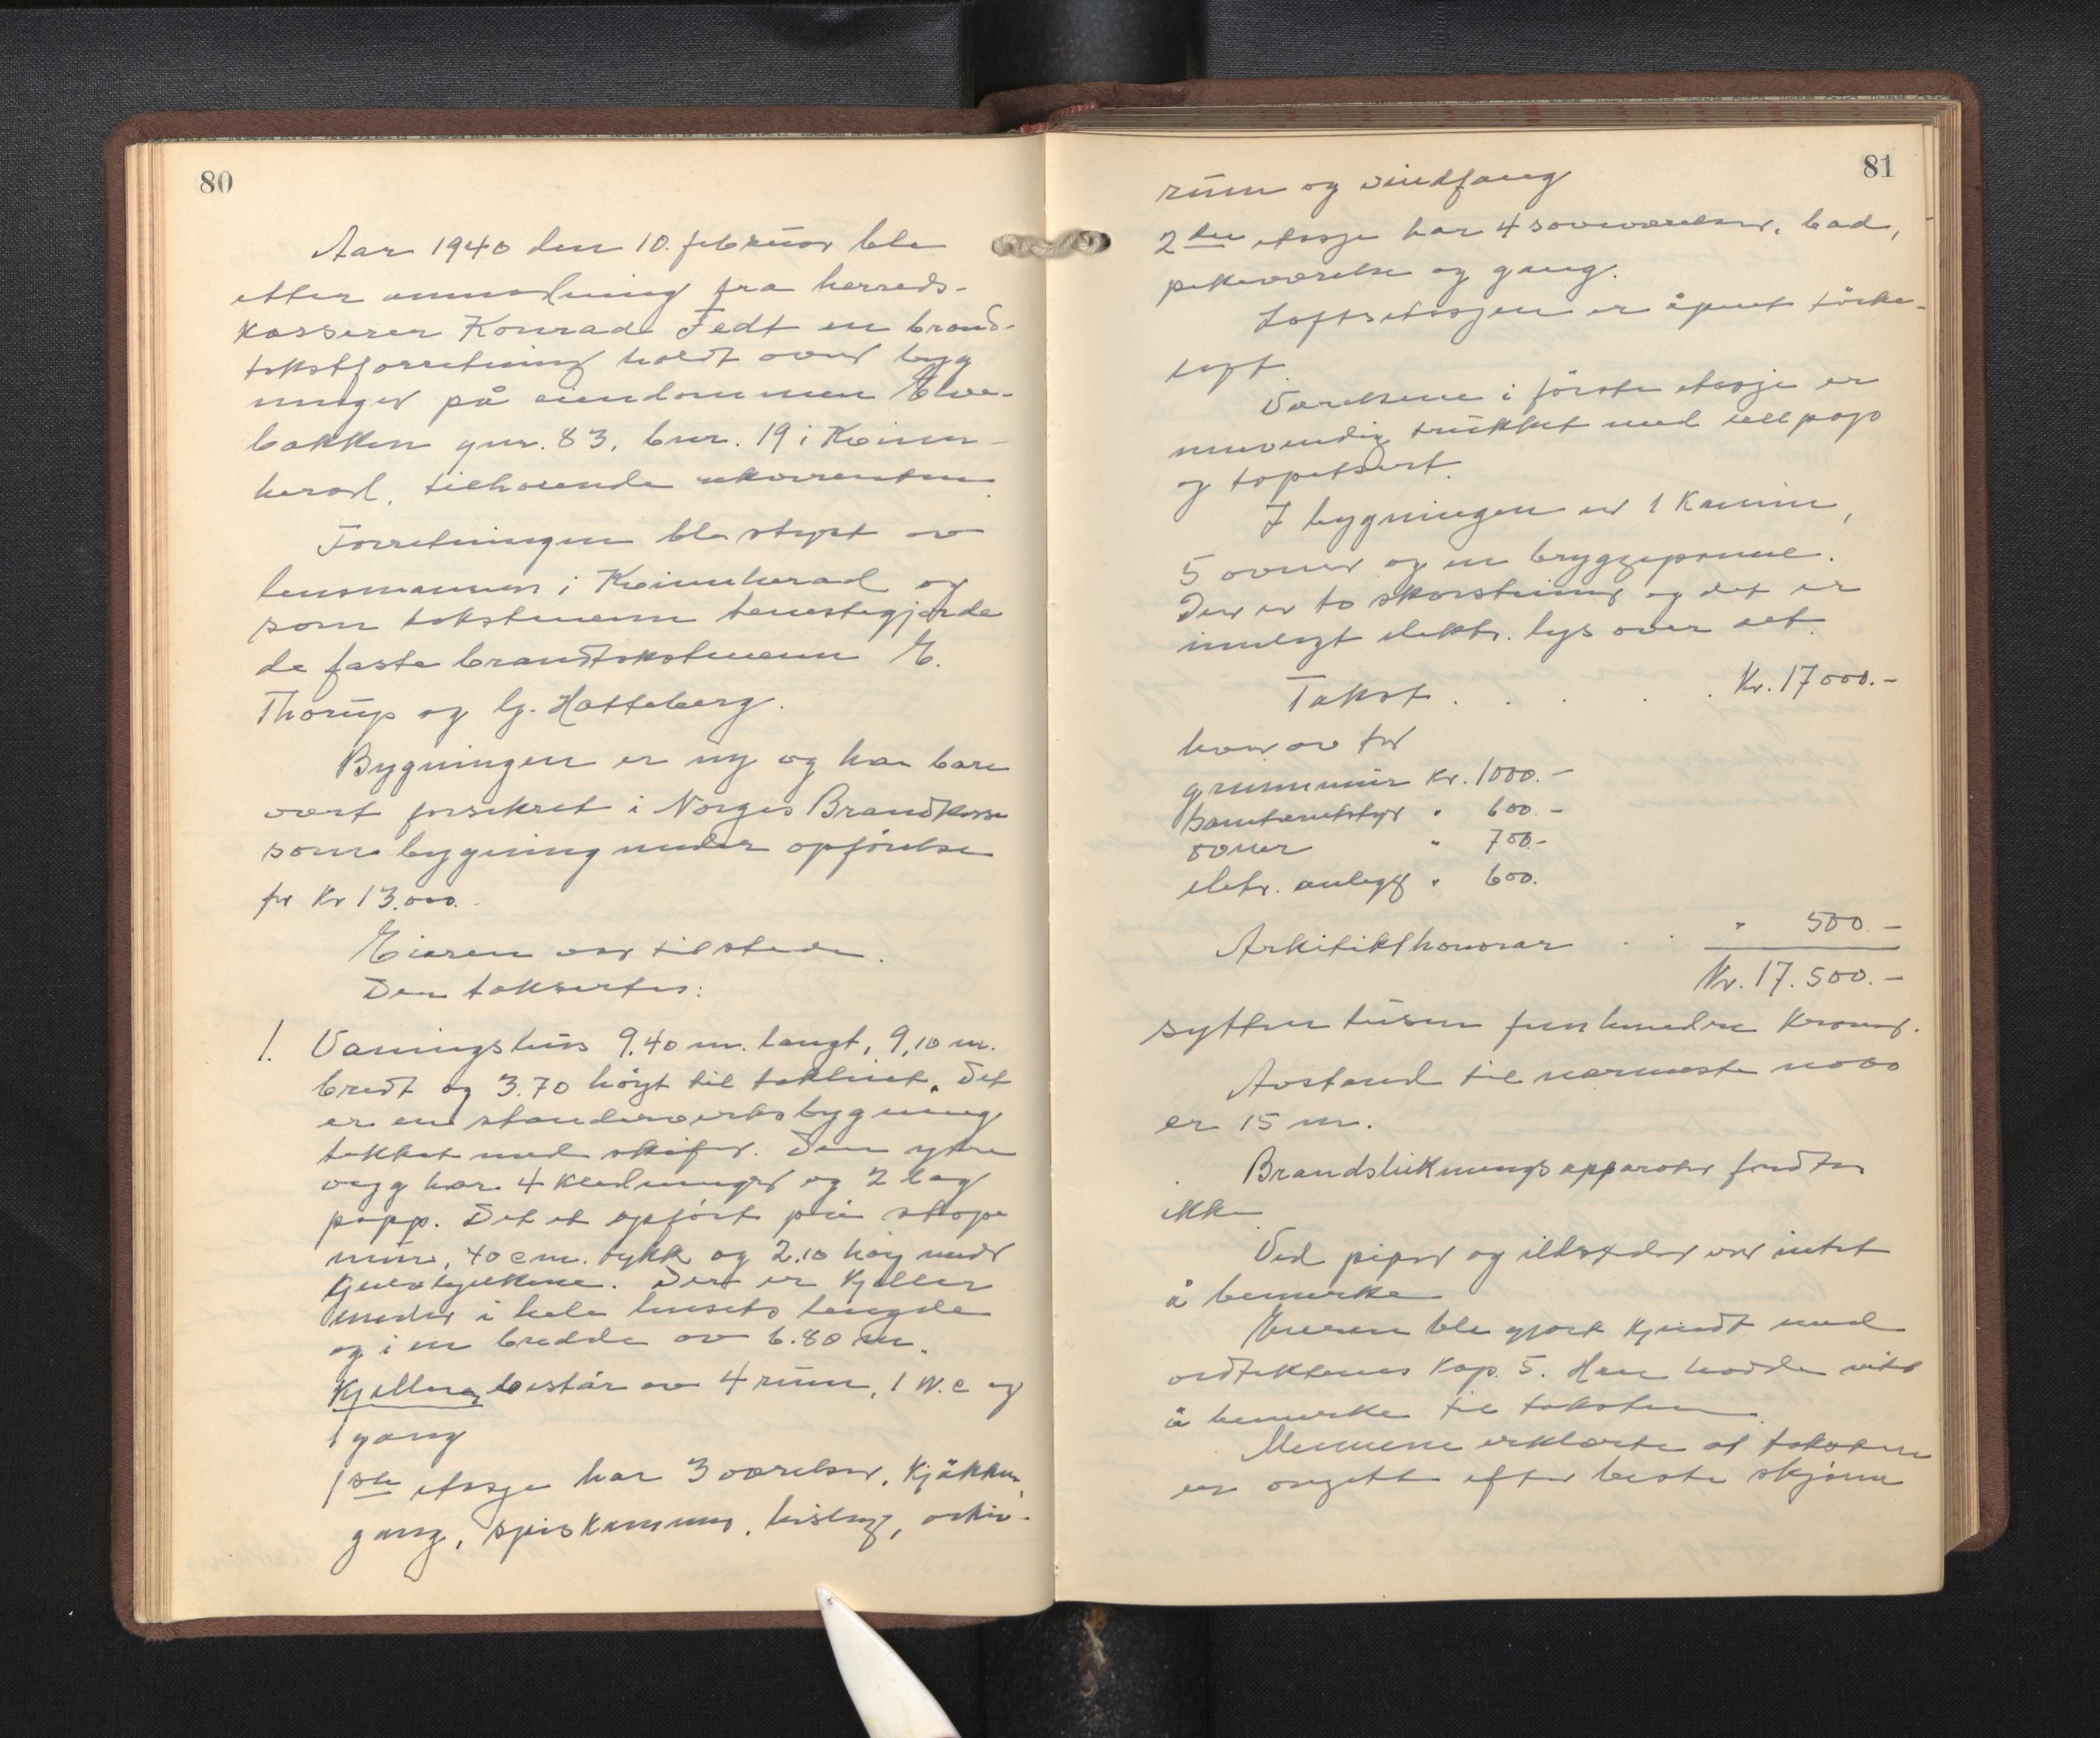 80
Aar 1940 den 10. februar ble
etter anmodning fra herreds-
kasserer Konrad Fedt en brand-
takstforretning holdt over byg
ninger på eiendommen Elve-
bakken gnr. 83, bnr. 19 i Kvinn-
herad, tilhørende rekvirenten.
Forretningen ble styrt av
lensmannen i Kvinnherad og
som takstmenn tenestegjorde
de faste brandtakstmenn E.
Thorup og G. Hatteberg.
Bygningen er ny og har bare
vært forsikret i Norges Brandkasse
som bygning under opførelse
for Kr 13.000.-
Eieren var tilstede.
Den taksertes:
1. Vaningshus 9.40 m. langt, 9,10 m.
bredt og 3.70 høgt til takhvet. Det
er en standerverksbygning
tekket med skifer. Den ytre
vegg har 4 kledninger og 2 lag
papp. Det et opført på støpe
mur, 40 cm. tykk og 2.10 høg under
Der er kjeller
under i hele husets lengde
og i en bredde av 6.80 m.
Kjelleren består av 4 rum, 1 W.c og
1 gang
1ste etasje har 3 værelser, kjøkken,
gang, spiskammer, bislag, arkiv-
81
rum og vindfang
2den etasje har 4 soveværelser, bad,
pikeværelse og gang.
Loftsetasjen er åpent tørke-
loft
Værelsene i første etasje er
innvendig trukket med cellpapp
og tapetsert.
I bygningen er 1 Kamin,
5 ovner og en bryggepanne.
Der er to skorsteiner og det er
innlagt elektr. lys over alt.
Takst . . . . . Kr. 17000.-
hvor av for
grunnmur Kr. 1000.-
sanitærutstyr " 600.-
ovner " 700.-
eletr. anlegg " 600.
Arkitekthonorar . . " 500.-
Kr. 17.500.-
sytten tusen femhundre Kroner.
Avstand til nærmeste nabo
er 15 m.
Brandslukningsapparater fandtes
ikke
Ved piper og ildsteder var intet
å bemerke
Eieren ble gjort kjendt med
vedtektenes kap. 5. Han hadde intet
å bemerke til taksten.
Mennene erklærte at taksten
er avgitt efter beste skjønn